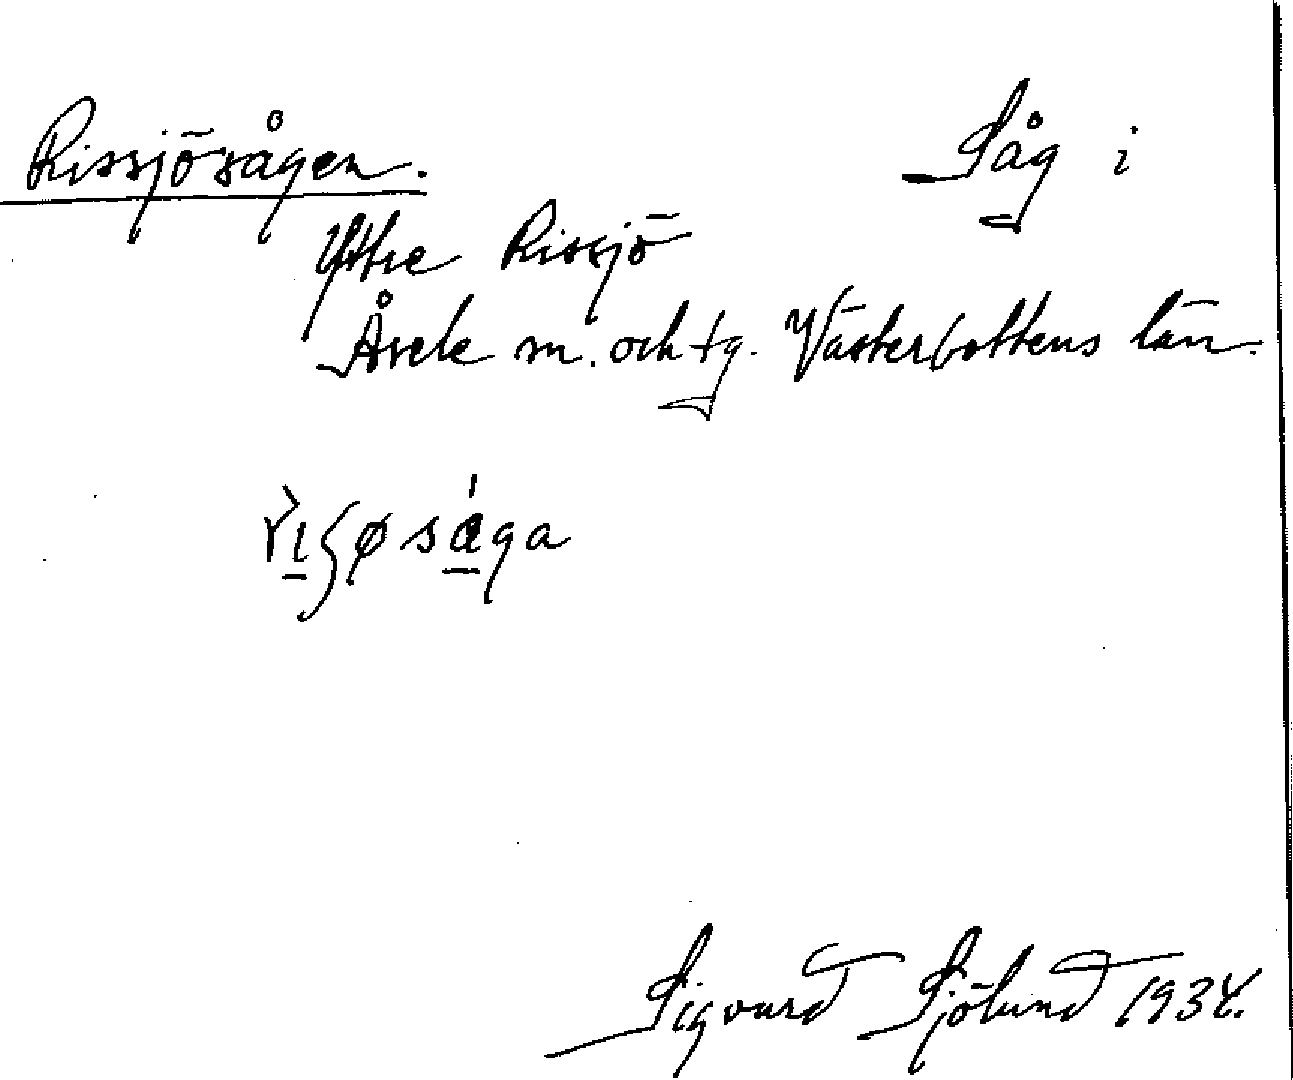 Rissjösågen. Såg i
Yttre Rissjö
Åsele sn. och tg. Västerbottens län.
Sigvard Sjölund 1934.